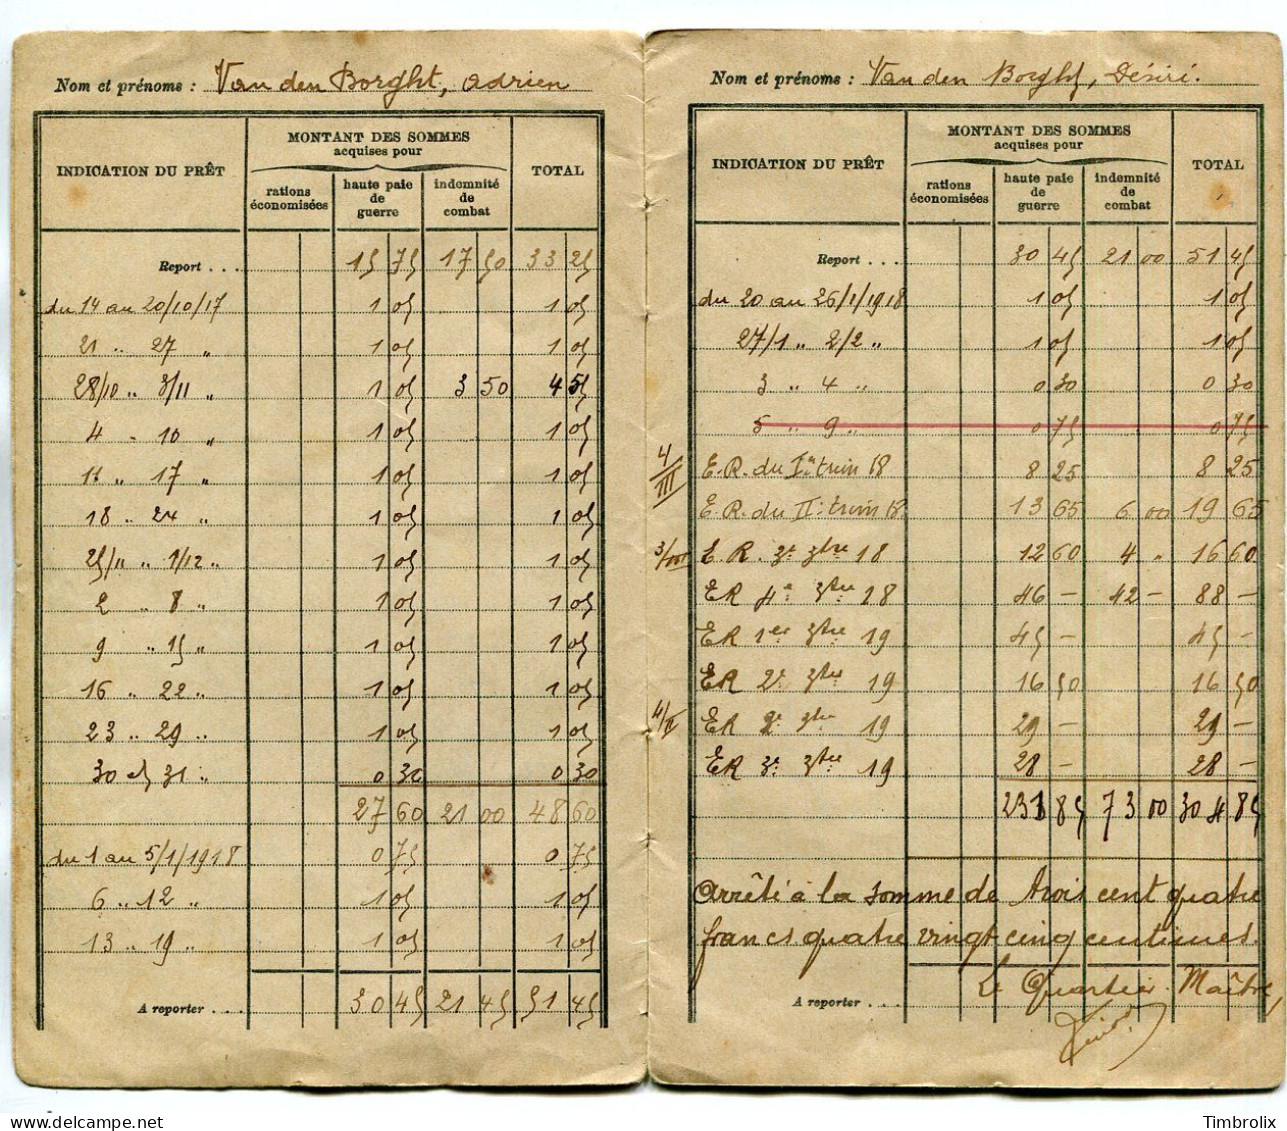 Nom et prénoms : Van den Borght, Adrien
INDICATION DU PRÊT
MONTANT DES SOMMES
acquises pour
TOTAL
rations économisées
haute paie de guerre
indemnité de combat
Report . . . 15 75 17 50 33 25
du 14 au 20/10/17 1 05 1 05
21 " 27 " 1 05 1 05
28/10 " 3/11 " 1 05 3 50 4 55
4 " 10 " 1 05 1 05
11 " 17 " 1 05 1 05
18 " 24 " 1 05 1 05
25/11 " 1/12 " 1 05 1 05
2 " 8 " 1 05 1 05
9 " 15 " 1 05 1 05
16 " 22 " 1 05 1 05
23 " 29 " 1 05 1 05
30 et 31 " 0 30 0 30
27 60 21 00 48 60
du 1 au 5/1/1918 0 75 0 75
6 " 12 " 1 05 1 05
13 " 19 " 1 05 1 05
A reporter . . . 30 45 21 45 51 45
Nom et prénoms : Van den Borght, Désiré.
INDICATION DU PRÊT
MONTANT DES SOMMES
acquises pour
TOTAL
rations économisées
haute paie de guerre
indemnité de combat
Report . . . 30 45 21 00 51 45
du 20 au 26/1/1918 1 05 1 05
27/1 " 2/2 " 1 05 1 05
3 " 4 " 0 30 0 30
5 " 9 " 0 75 0 75
4/III E.R. du Ier trim 18 8 25 8 25
E.R. du II: trim 18. 13 65 6 00 19 65
E.R. 3e 3tre 18 12 60 4 " 16 60
ER 4e 3tre 18 46 — 42 — 88 —
ER 1er 3tre 19 45 — 45 —
ER 2e 3tre 19 16 50 16 50
4/II ER 2e 3tre 19 29 — 29 —
ER 3e 3tre 19 28 — 28 —
231 85 73 00 304 85
Arrêté à la somme de trois cent quatre
francs quatre vingt cinq centimes.
Le Quartier Maître,
A reporter . . .
Timbrolix